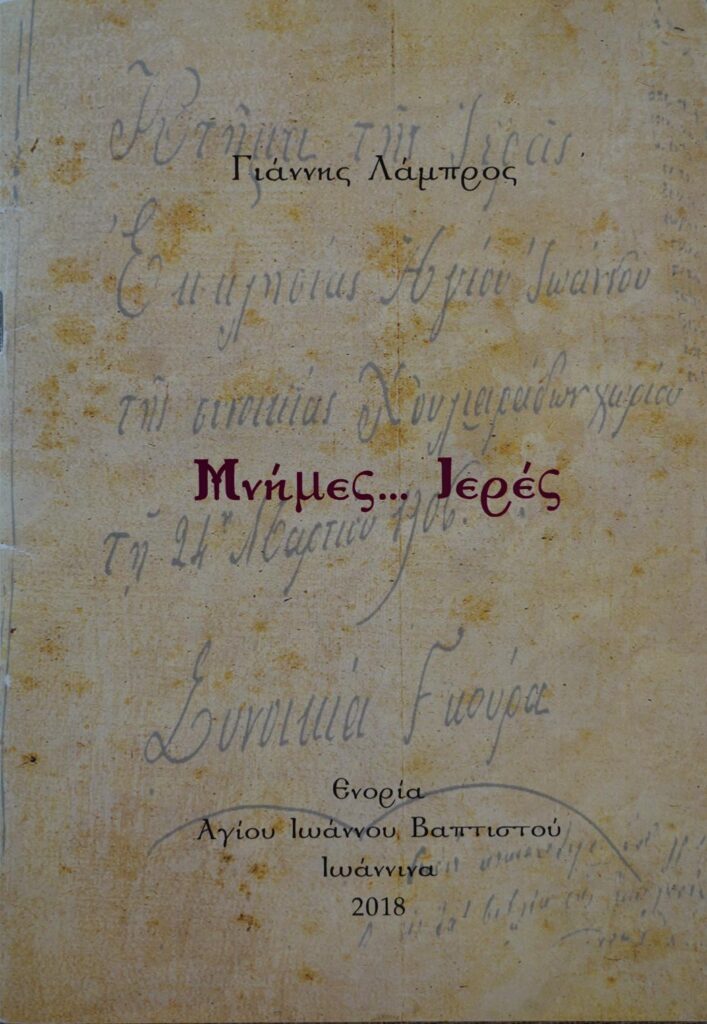 Κτῆμα τῆς Ἱερᾶς
Γιάννης Λάμπρος
Ἐκκλησίας Ἁγίου Ἰωάννου
τῆς συνοικίας Χουλιαράδων χωρίου
Μνήμες... Ιερές
τῇ 24ῃ Μαρτίου 1906.
Συνοικία Γκούρα
Ενορία
Αγίου Ιωάννου Βαπτιστού
Ιωάννινα
2018